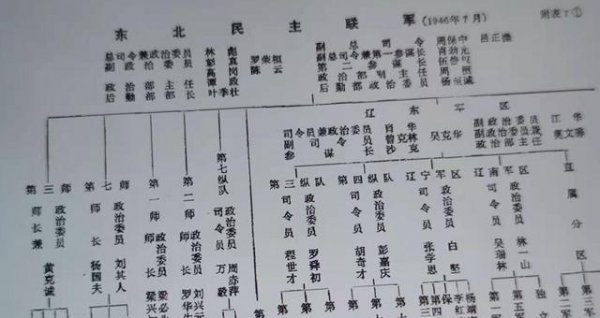 东北民主联军(1946年7月)
附表7①
总司令兼政治委员 林彪
副政治委员 彭真 罗荣桓
高岗 陈云
政治部主任 谭政
后勤部部长 叶季壮
副总司令 周保中 吕正操
副总司令兼第一参谋长 肖劲光
第二参谋长 伍修权
政治部副主任 周桓
辽东军区
司令员兼政治委员 肖华
副司令员 曾克林 吴克华
参谋长 沙克
副政治委员 江华
莫文骅
第三师
师长兼政治委员 黄克诚
第七师
师长 杨国夫
政治委员 刘其人
第一师
师长 梁兴
政治委员 梁必
第二师
师长 罗华生
政治委员 刘兴元
第七纵队
司令员 万毅
政治委员 周赤萍
第三纵队
司令员 程世才
政治委员 罗舜初
第四纵队
司令员 胡奇才
政治委员 彭嘉庆
辽宁军区
司令员 张学思
政治委员 白坚
辽南军区
司令员 吴瑞林
政治委员 林一山
直属分区